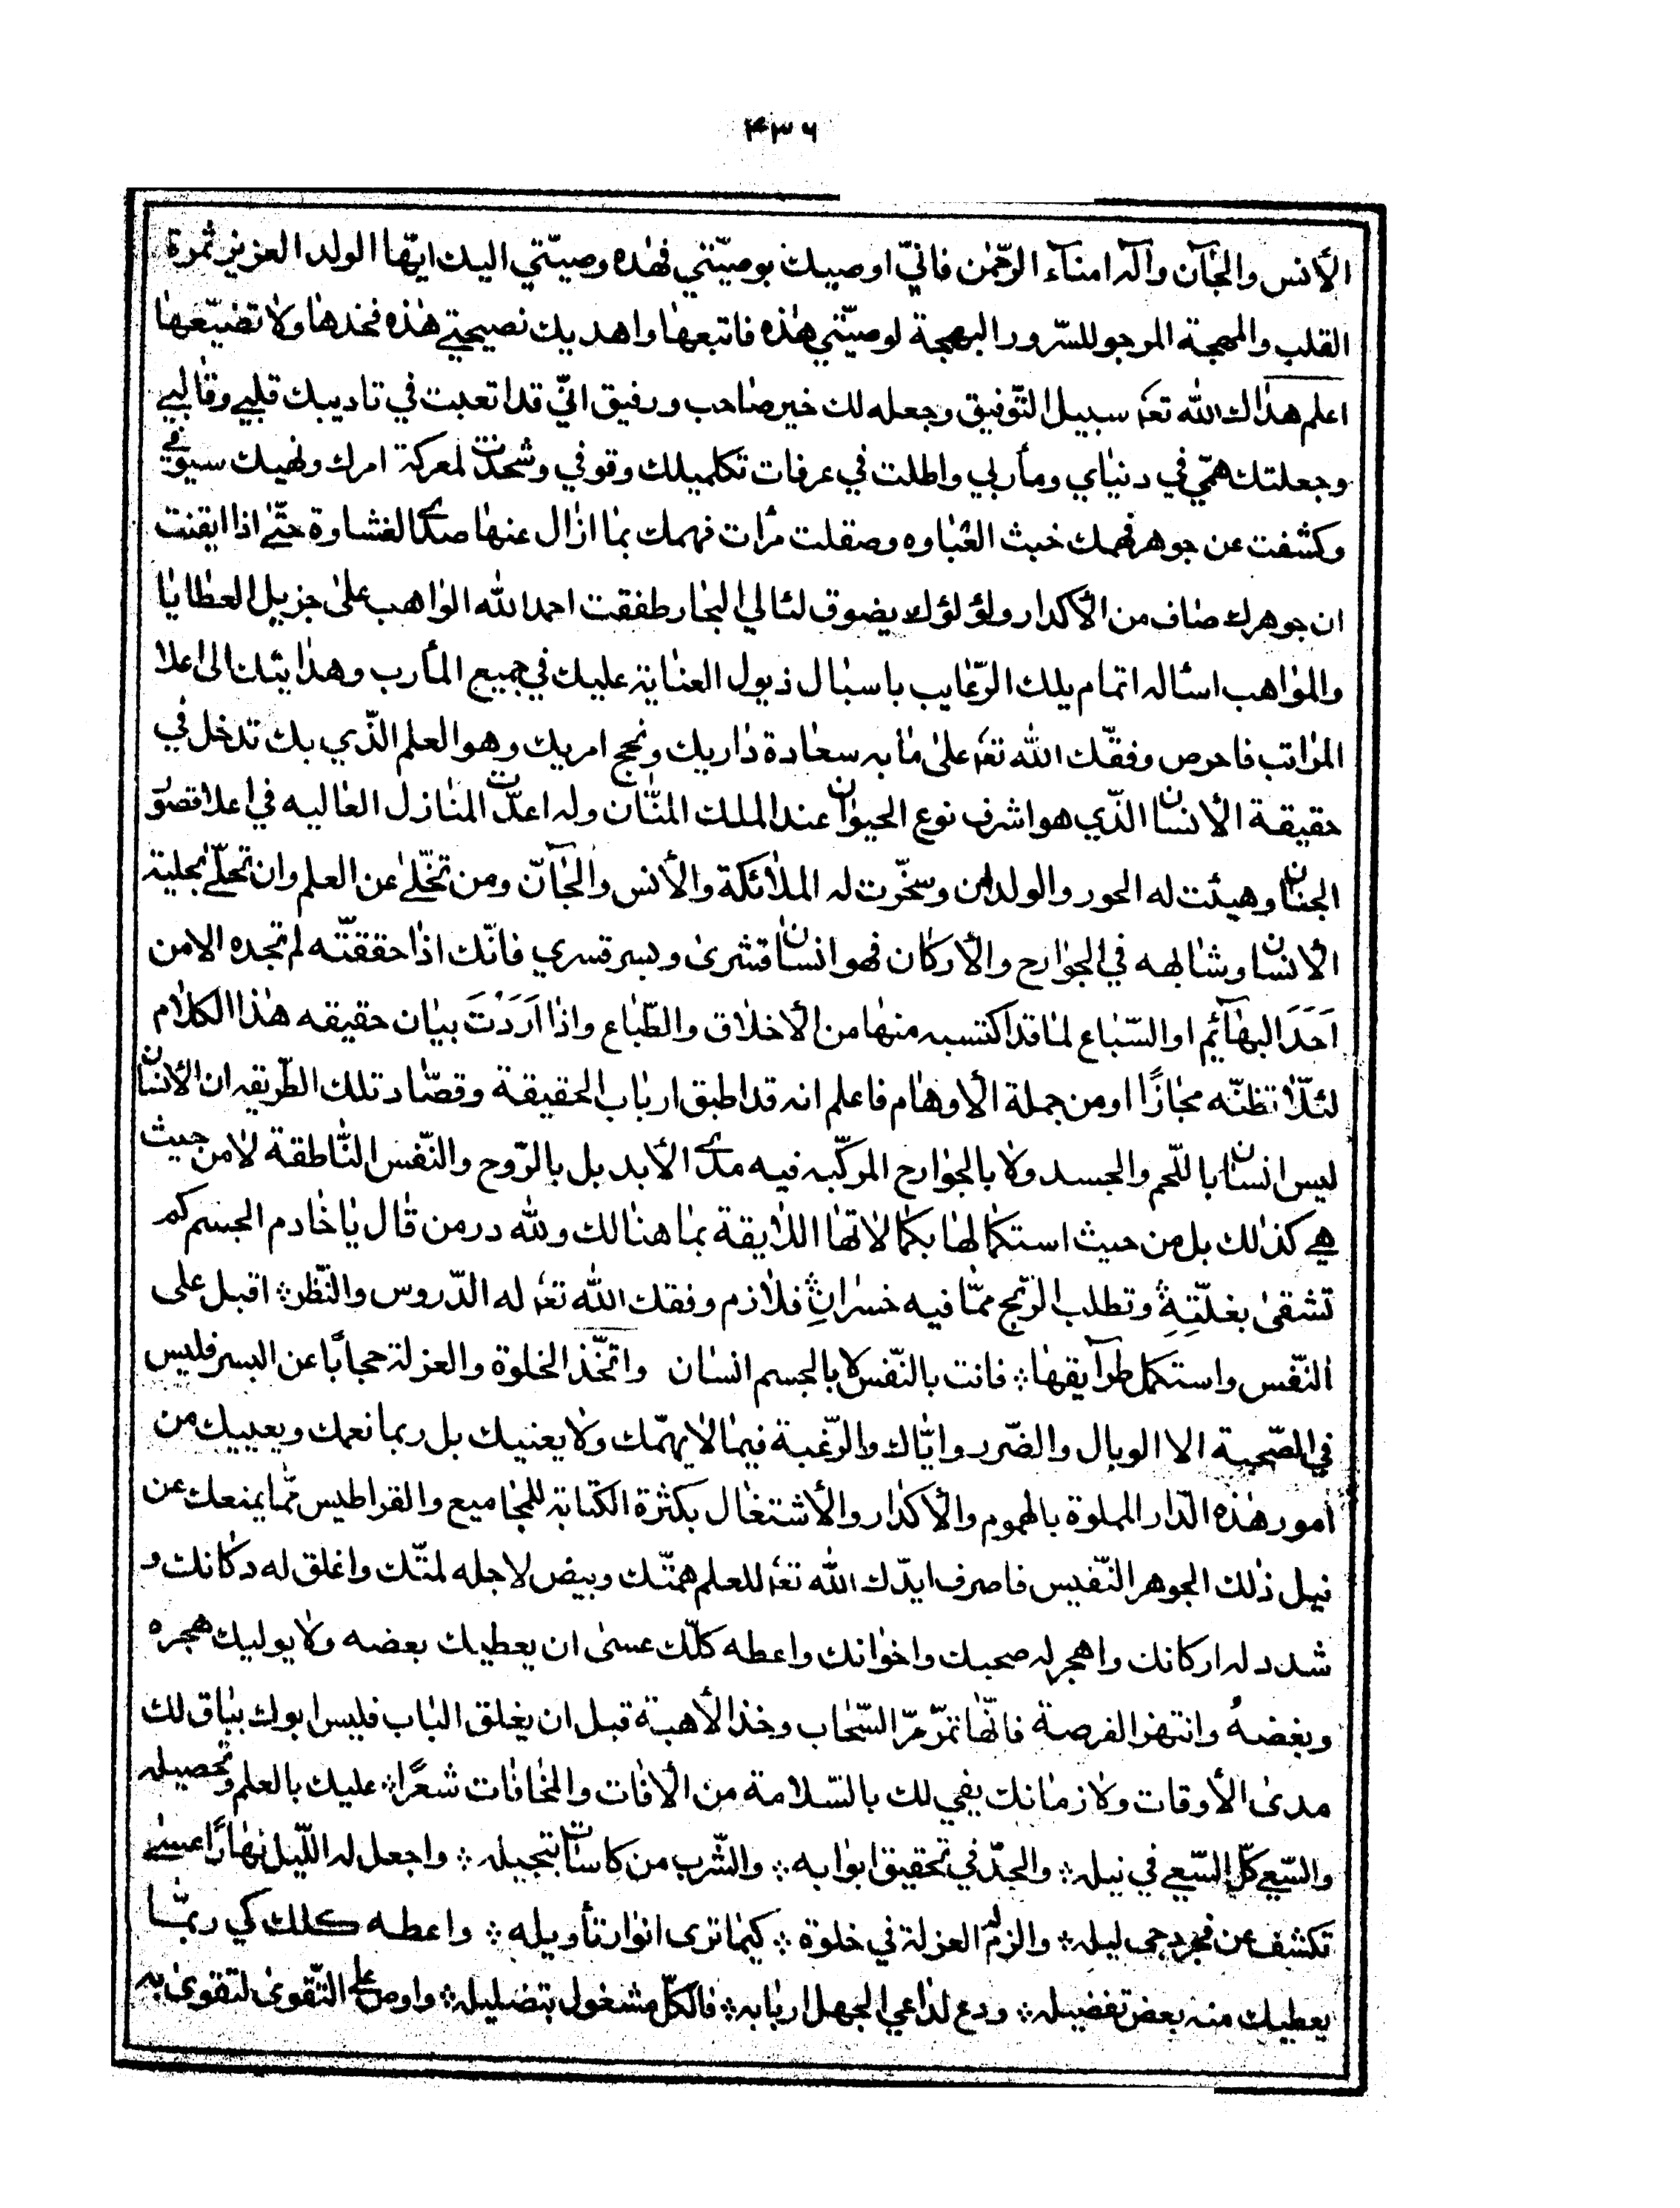 ۴۳۶
الأنس والجٰآن وآله امناء الرّحمٰن فانّي اوصيك بوصيّتي فهٰذه وصيّتي اليك ايّها الولد العزيز ثمرة
القلب والمهجة المرجو للسّرور البهجة لوصيّتي هٰذه فاتبعهٰا واهديك نصيحتي هٰذه فخذهٰا ولا تضيّعهٰا
اعلم هدٰاك الله تعٰه سبيل التّوفيق وجعله لك خير صٰاحب ورفيق انّي قد اتعبت في تاديبك قلبي وقٰالبي
وجعلتك همّي في دنيٰاي ومأربي واطلت في عرفات تكلميلك وقوفي وشحذت لمعركة امرك ونهيك سيوفي
وكشفت عن جوهر فهمك خبث الغبٰاوه وصقلت مرٰات فهمك بمٰا ازٰال عنهٰا صدى الغشاوة حتّى اذا ايقنت
ان جوهرك صٰاف من الأكدار ولؤلؤك يضوق لئالي البحٰار طفقت احمد الله الوٰاهب على جزيل العطٰايٰا
والموٰاهب اسئاله اتمام يلك الرّغايب باسبٰال ذيول العنٰاية عليك في جميع المأرب وهدٰايتك الى اعلا
المرٰاتب فاحرص وفقّك الله تعٰه على مٰا به سعٰادة دٰاريك ونجح امريك وهو العلم الّذي بك تدخل في
حقيقة الأنسٰان الّذي هو اشرف نوع الحيوٰان عند الملك المنّٰان وله اعدّت المنٰازل العٰاليه في اعلا قصور
الجنٰان وهيئت له الحور والولدٰان وسخّرت له الملٰائكة والأنس والجٰآنّ ومن تخّلى عن العلم وان تحلّى بحلية
الأنسٰان وشابهه في الجوٰارح والأركٰان فهو انسٰان قشرى وبسر قسري فانّك اذٰا حققتّه لم تجده الا من
اَحَدَ البهٰآئم او السّبٰاع لمٰا قد اكتسبه منهٰا من الأخلٰاق والطّبٰاع واذٰا اَرَدْتَ بيٰان حقيقه هٰذا الكلٰام
لئلّا تظنّه مجٰازًا او من جملة الأوهٰام فاعلم انه قد اطبق اربٰاب الحقيقة وقصّٰاد تلك الطّريقه ان الأنسٰان
ليس انسٰان باللّحم والجسد ولا بالجوٰارح المركّبه فيه مدى الأبد بل بالرّوح والنّفس النّٰاطقة لا من حيث
هي كذٰلك بل من حيث استكمٰالهٰا بكمٰالاتهٰا اللٰايقة بمٰا هنٰالك ولله در من قٰال يٰا خٰادم الجسم كم
تشقىٰ بغلّتِةِ وتطلب الرّبح ممّٰا فيه خسرٰان فلٰازم وفقك الله تعٰه له الدّروس والنّظر ؞ اقبل على
النّفس واستكمل طرآيقهٰا ؞ فانت بالنّفس لا بالجسم انسٰان واتّخذ الخلوة والعزلة حجابًا عن البسر فليس
في الصّحبة الا الوبال والضّرر وايّٰاك والرّغبة فيمٰا لا يهمّك ولا يعنيك بل ربمانعمك ويعيبك من
امور هٰذه الدّار المملوة بالهموم والأكدٰار والأشتغٰال بكثرة الكتٰابة للمجٰاميع والقراطيس ممّٰا يمنعك عن
نيل ذٰلك الجوهر النّفيس فاصرف ايدّك الله تعٰه للعلم همتّك وبيض لاجله لمتّك واغلق له دكٰانك و
شدد له اركانك واهجر له صحبك واخوٰانك واعطه كلّك عسىٰ ان يعطيك بعضه ولا يوليك هجره
وبغضهُ وانتهز الفرصة فانّهٰا تمرّ مرّ السّحٰاب وخذ الأهبة قبل ان يغلق البٰاب فليس ابوك ببٰاق لك
مدىٰ الأوقات ولا زمٰانك يفي لك بالسّلامة من الأفٰات والمخٰافٰات شعرًا ؞ عليك بالعلم وتحصيله
والسّعي كلّ السّعي في نيله ؞ والجدّ في تحقيق ابوٰابه ؞ والشّرب من كاسٰات بتجيله ؞ واجعل له اللّيل نهٰارًا عسى
تكشف عن فجر دجى ليله ؞ والزم له العزلة في خلوة ؞ كيمٰا ترى انوٰار تأويله ؞ واعطه كلك كي ربمّٰا
يعطيك منه بعض تفضيله ؞ ودع لدٰاعي الجهل اربٰابه ؞ فالكلّ مشغول بتضليله ؞ واوص على التّقوىٰ لتقوىٰ به